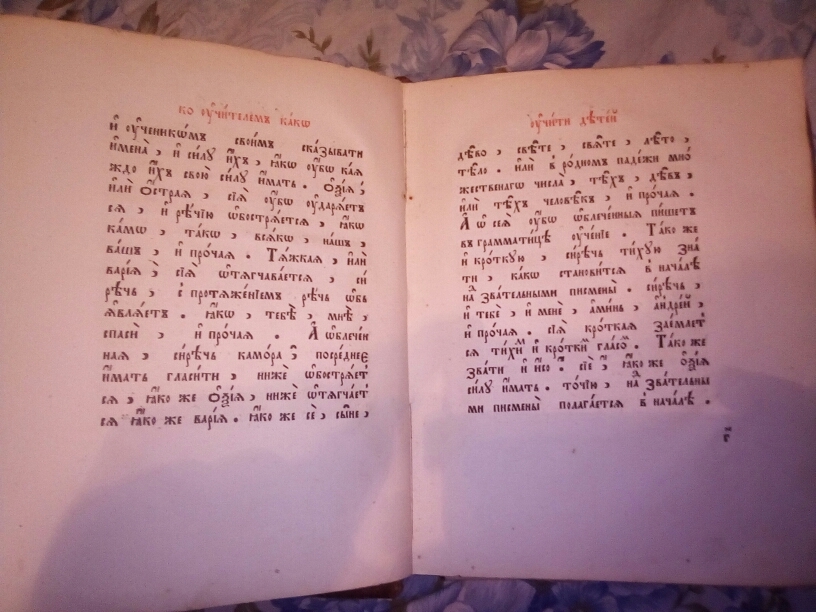 ко ᲂу҆чи́телємъ ка́кѡ
и҆ ᲂу҆ченикѡ́мъ свои̑мъ ска́зывати
имена̀, и҆ си́лу и҆́хъ, ꙗ҆́кѡ ᲂу҆́бѡ ка́ѧ
ждо и҆́хъ свою̀ си́лу и҆́мать. Ѻ҆ѯі́ѧ,
и҆лѝ ѻ҆́страѧ, сїѧ̀ ᲂу҆́бѡ ᲂу҆дарѧ́етъ
сѧ, и҆ рѣ́чїю ѡ҆бострѧ́етсѧ, ꙗ҆́кѡ
ка́мѡ, та́кѡ, всѧ́кѡ, на́шъ,
ва́шъ, и҆ про́чаѧ. Тѧ́жкаѧ, и҆лѝ
варі́ѧ, сїѧ̀ ѿтѧгчава́етсѧ, си
рѣ́чь, с̾ протѧже́нїемъ рѣ́чь ѡ҆бъ
ѧвлѧ́етъ. ꙗ҆́кѡ, тебѐ, мнѐ,
спасѝ, и҆ про́чаѧ. А҆ ѡ҆блече́н
наѧ, си́рѣчь камо́ра, посре́днее
и҆́мать гласи́ти, нижѐ ѡ҆бострѧ́ет
сѧ, ꙗ҆́ко же ѻ҆ѯі́ѧ, нижѐ ѿтѧгча́ет
сѧ ꙗ҆́ко же варі́ѧ. ꙗ҆́ко же сѐ, сы́не,
ᲂу҆чи́ти дѣте́й
дѣ́во, свѣ́те, свѧ́те, лѣ́то,
тѣ́ло. и҆лѝ в̾ ро́дномъ паде́жи мно́
жественагѡ числа̀, тѣ́хъ, дѣ́въ,
и҆лѝ тѣ́хъ человѣ́къ, и҆ про́чаѧ.
А҆ ѡ҆ се́ѧ ᲂу҆́бѡ ѡ҆блече́нныѧ пи́шетъ
въ граммати́цѣ ᲂу҆че́нїе. Та́ко же
и҆ кро́ткую, си́рѣчь ти́хую зна́
ти, ка́кѡ стано́витсѧ в̾ нача́лѣ
над̾ зва́тельными писмены̀. си́рѣчь,
и҆ тебѐ, и҆ менѐ, а҆ми́нь, а҆ндре́й,
и҆ про́чаѧ. сїѧ̀ кро́ткаѧ зае́млет
сѧ ти́хим и҆ кро́тким гла́сом. Та́ко же
зва́ти и҆ и҆со. сїѐ, ꙗ҆́ко же ѻ҆ѯі́ѧ
си́лу и҆́мать. то́чїю, над̾ зва́тельны
ми писмены̀ полага́етсѧ в̾ нача́лѣ.